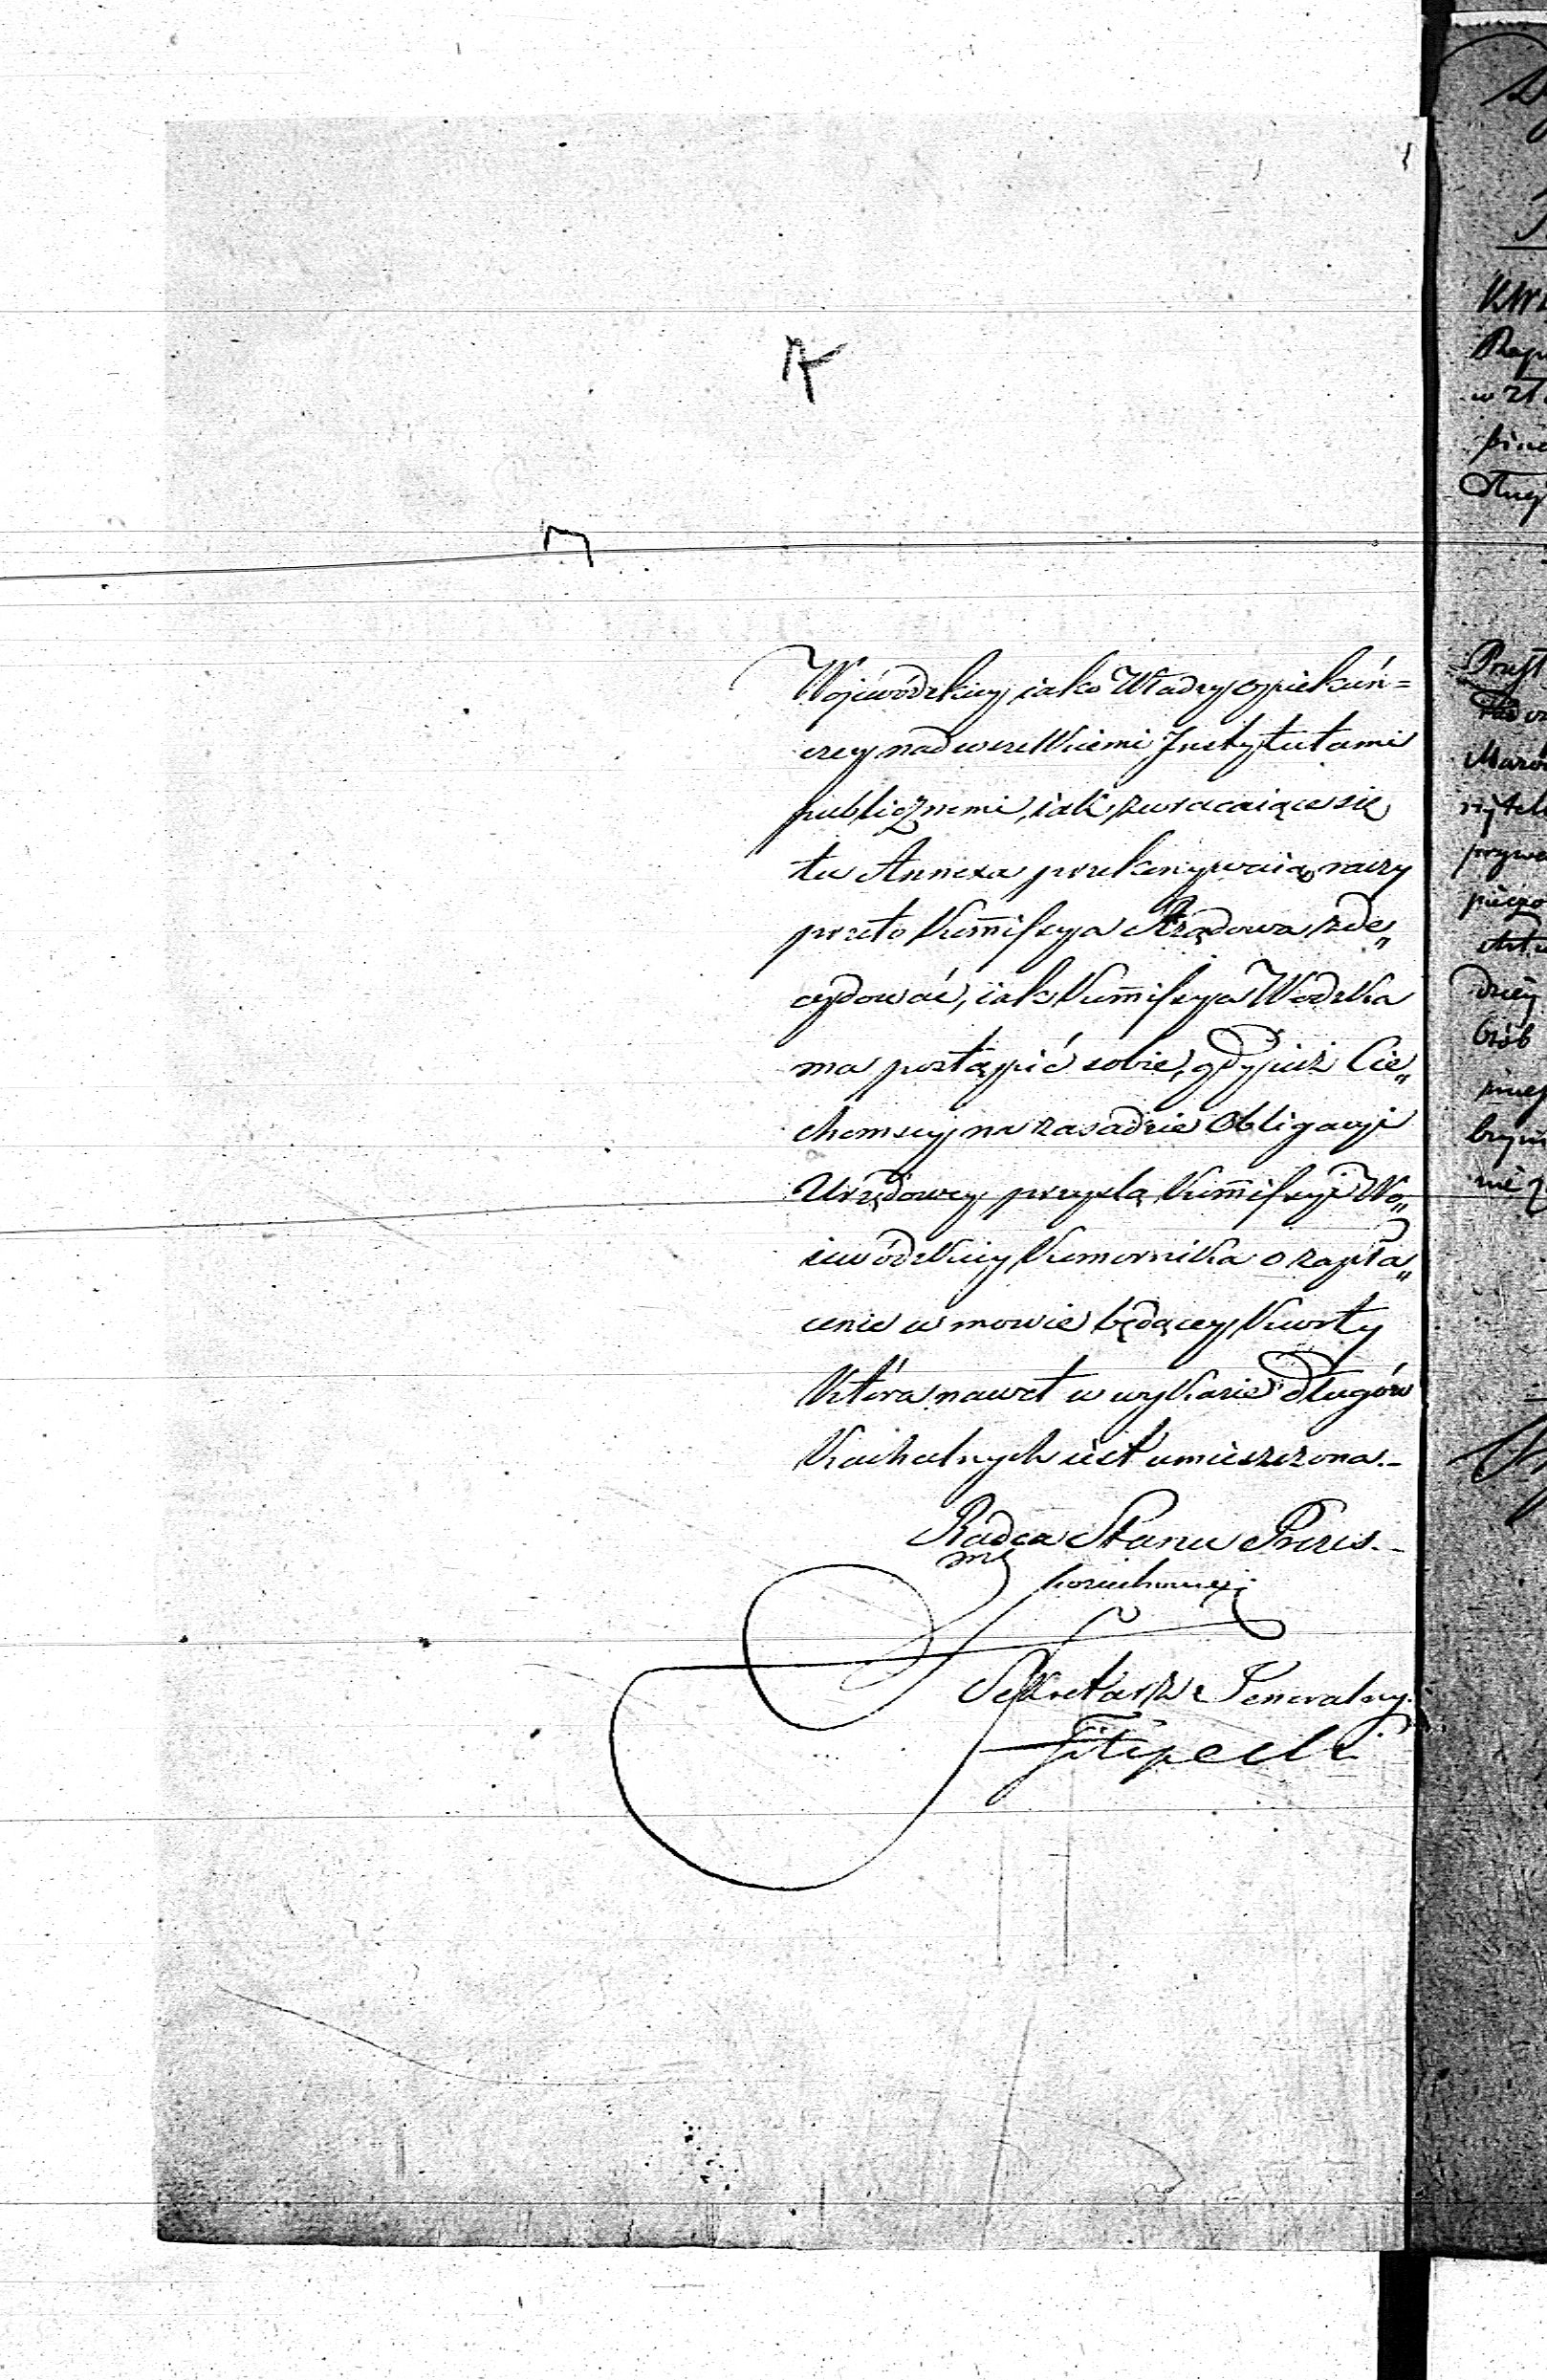 Wojewódzkiey iako Władzy opiekuń=
czey nad wszelkiemi Instytutami
publicznemi, iak zwracaiące się
tu Annexa przekonywaią, raczy
przeto Kommissya Rządowa zde„
cydować, iak Kommissya Wodzka
ma postąpić sobie, gdy już Cie„
chomscy na zasadzie Obligacyi
Urzędowey przyszlą Kommissyi Wo„
iewódzkiey Komornika o zapła„
cenie w mowie będącey Kwoty
która nawet w wykazie długów
Kachalnych iest umieszczona.-
Radca Stanu Prezes.-
Sekretarz Generalny.
Filipecki